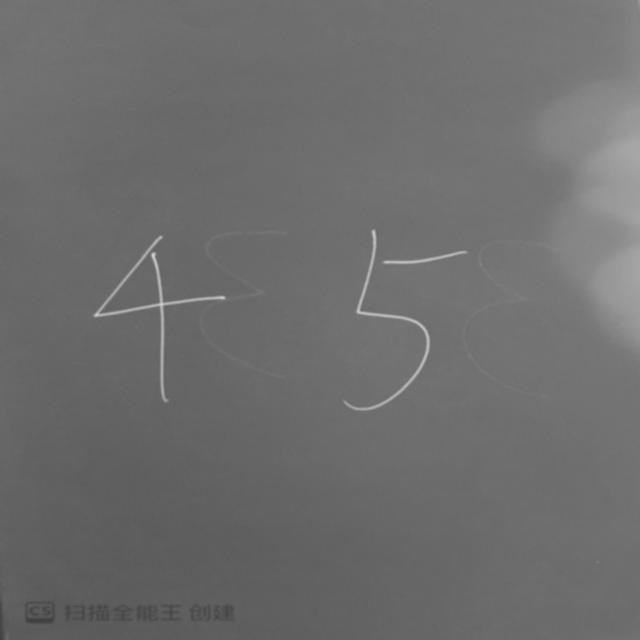 4 ε 5 ε
CS 扫描全能王 创建